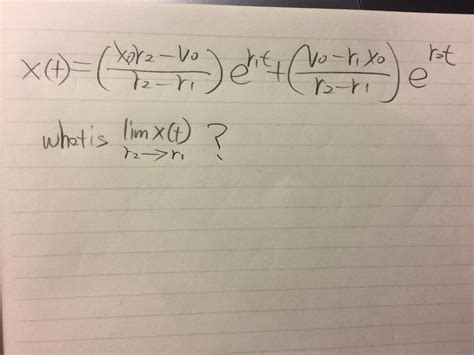 x(t)=(\frac{x_0r_2-v_0}{r_2-r_1})e^{r_1t}+(\frac{v_0-r_1x_0}{r_2-r_1})e^{r_2t}
what is \lim_{r_2→r_1} x(t) ?